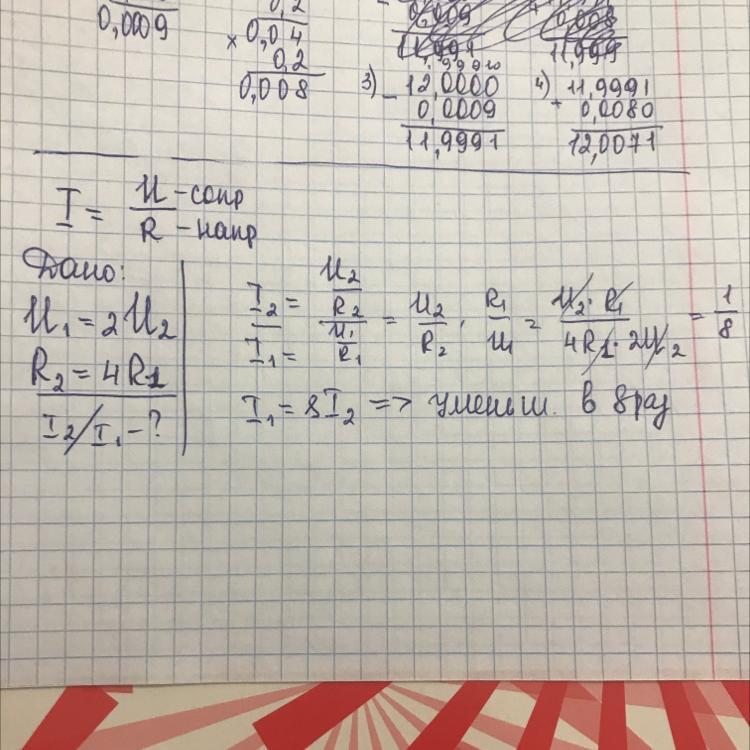 0,0009
0,2
× 0,04
0,2
0,008
0,009
11,991
0,008
11,999
3) 12,0000
- 0,0009
11,9991
4) 11,9991
+ 0,0080
12,0071
I = U - сопр
R - напр
Дано:
U₁ = 2U₂
R₂ = 4R1
I₂/I₁ - ?
I₂ = U₂/R₂
I₁ = U₁/R₁ = U₂/R₂ · R₁/U₁ = U₂·R₁/4R1·2U₂ = 1/8
I₁ = 8I₂ => уменьш. в 8 раз